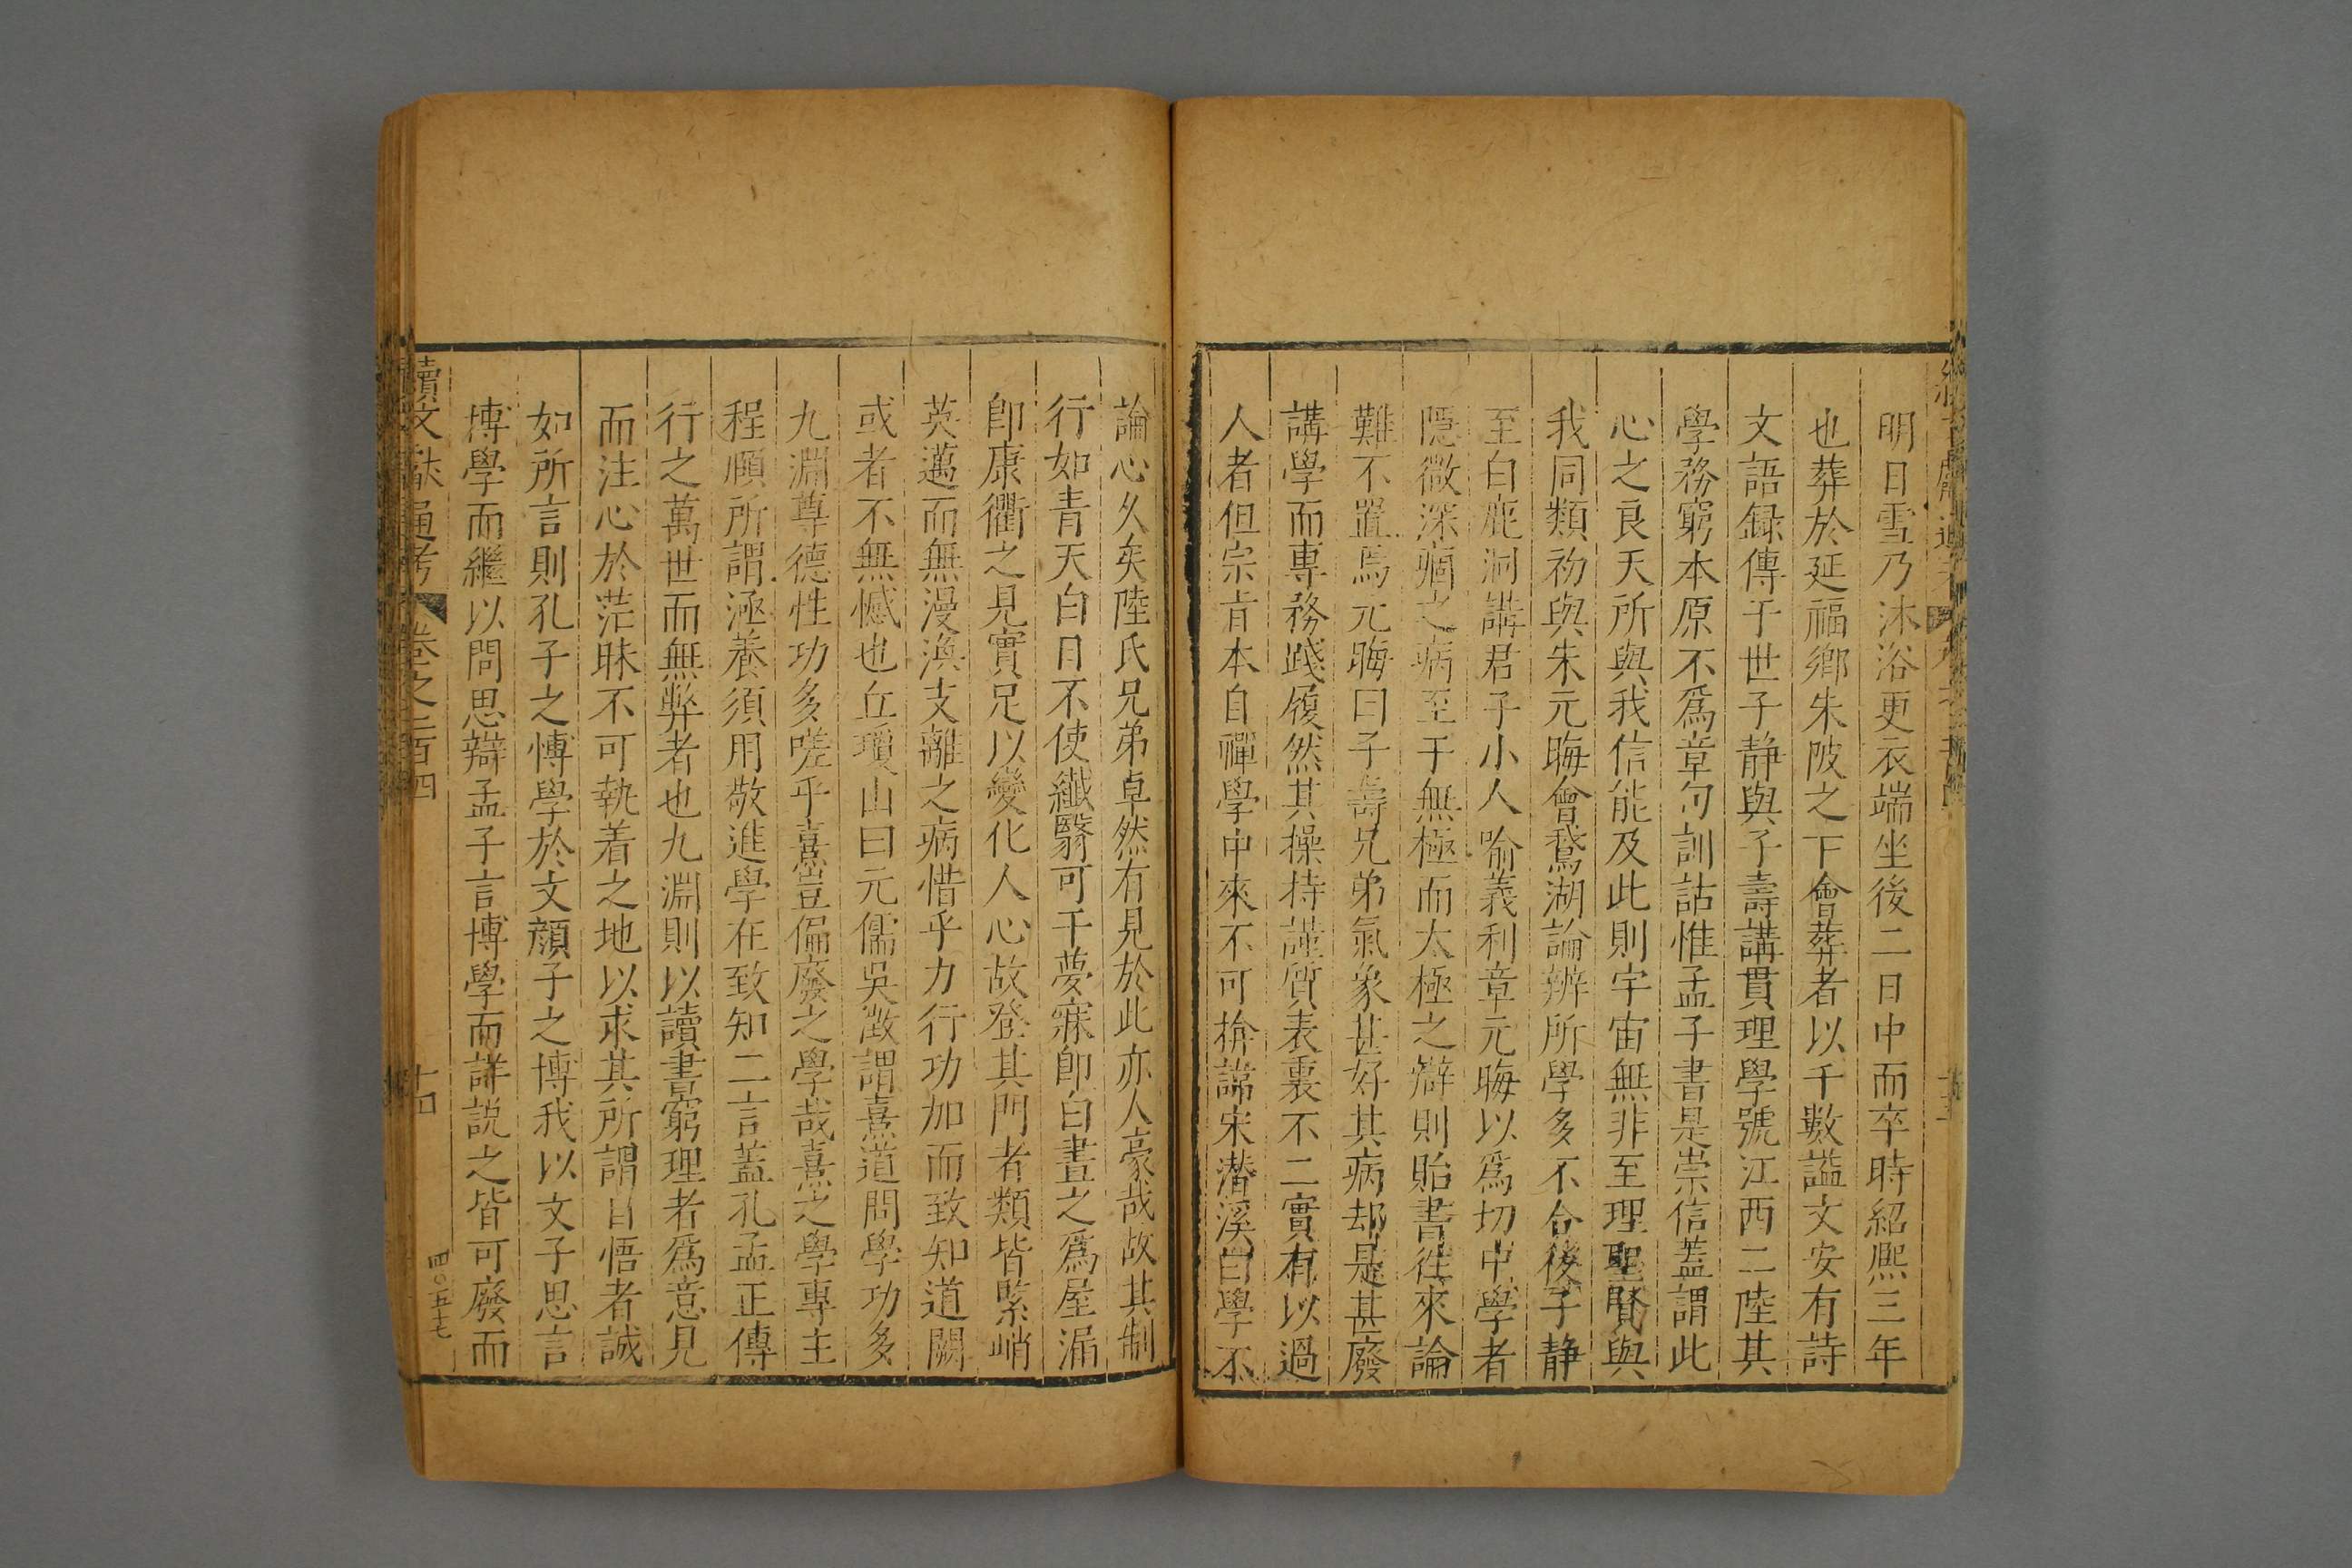 明日雪乃沐浴更衣端坐後二日中而卒時紹熈三年
也葬於延福鄉朱陂之下會葬者以千數謚文安有詩
文語録傳于世子静與子壽講貫理學號江西二陸其
學務窮本原不爲章句訓詁惟孟子書是崇信蓋謂此
心之良天所與我信能及此則宇宙無非至理聖賢與
我同類初與朱元晦會鵞湖論辨所學多不合後子静
至白鹿洞講君子小人喻義利章元晦以爲切中學者
隱微深痼之病至于無極而太極之辯則貽書往來論
難不置焉元晦曰子壽兄弟氣象甚好其病却是甚廢
講學而專務踐履然其操持謹質表裏不二實有以過
人者但宗肯本自禪學中來不可揜諦宋潛溪曰學不
論心久矣陸氏兄弟卓然有見於此亦人豪哉故其制
行如青天白日不使纖翳可干夢寐即白晝之爲屋漏
即康衢之見實足以變化人心故登其門者類皆緊峭
英邁而無漫渙支離之病惜乎力行功加而致知道闕
或者不無憾也丘瓊山曰元儒吳澂謂熹道問學功多
九淵尊德性功多嗟乎熹豈偏廢之學哉熹之學專主
程頤所謂涵養須用敬進學在致知二言蓋孔孟正傳
行之萬世而無弊者也九淵則以讀書窮理者爲意見
而注心於茫昧不可執着之地以求其所謂自悟者誠
如所言則孔子之愽學於文顔子之博我以文子思言
博學而繼以問思辯孟子言博學而詳説之皆可廢而
續文献通考 卷之二百四 十四
四〇五七